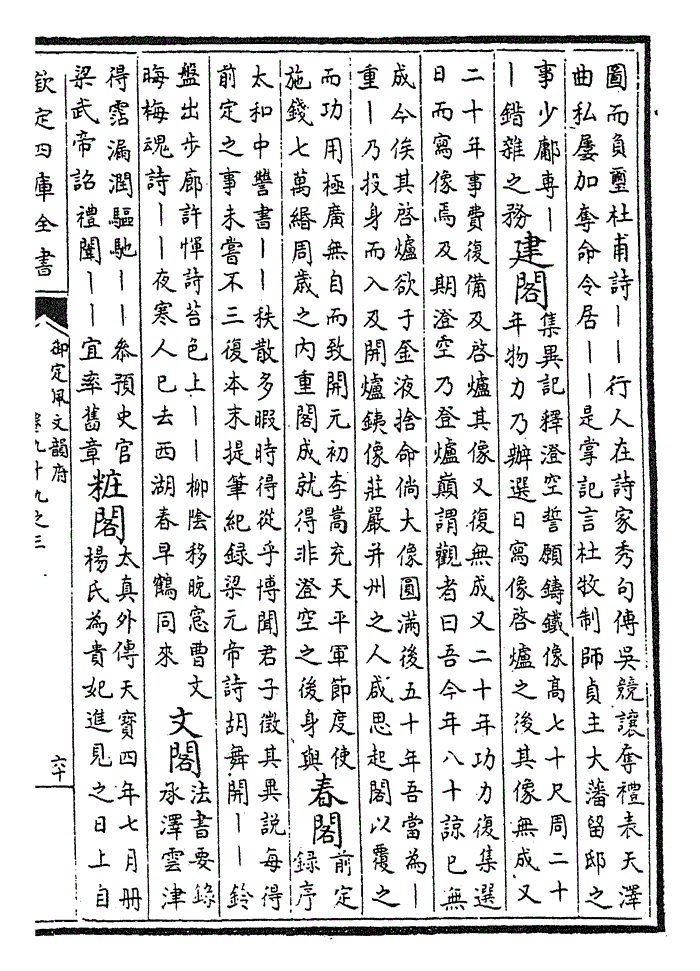 圖而負璽杜甫詩丨丨行人在詩家秀句傳吳競讓奪禮表天澤
曲私屢加奪命令居丨丨是掌記言杜牧制師貞主大藩留邸之
事少鄘専丨
丨錯雜之務
建閣
集異記釋澄空誓願鑄鐵像高七十尺周二十
年物力乃辦選日寫像啓爐之後其像無成又
二十年事費復備及啓爐其像又復無成又二十年功力復集選
日而寫像焉及期澄空乃登爐巔謂觀者曰吾今年八十諒已無
成今俟其啓爐欲于金液捨命倘大像圓滿後五十年吾當為丨
重丨乃投身而入及開爐銕像莊嚴并州之人感思起閣以覆之
而功用極廣無自而致開元初李暠充天平軍節度使
施錢七萬緡周歲之内重閣成就得非澄空之後身與
春閣
前定
錄序
太和中讐書丨丨秩散多暇時得從乎博聞君子徵其異說每得
前定之事未嘗不三復本末提筆紀録梁元帝詩胡舞開丨丨鈴
盤出步廊許惲詩苔色上丨丨柳陰移晚窓曹文
晦梅魂詩丨丨夜寒人已去西湖春早鶴同來
文閣
法書要錄
承澤雲津
得霑漏潤驅馳丨丨叅預史官
梁武帝詔禮闈丨丨宜率舊章
粧閣
太真外傳天寳四年七月冊
楊氏為貴妃進見之日上自
欽定四庫全書
御定佩文韻府
卷九十九之三
六十